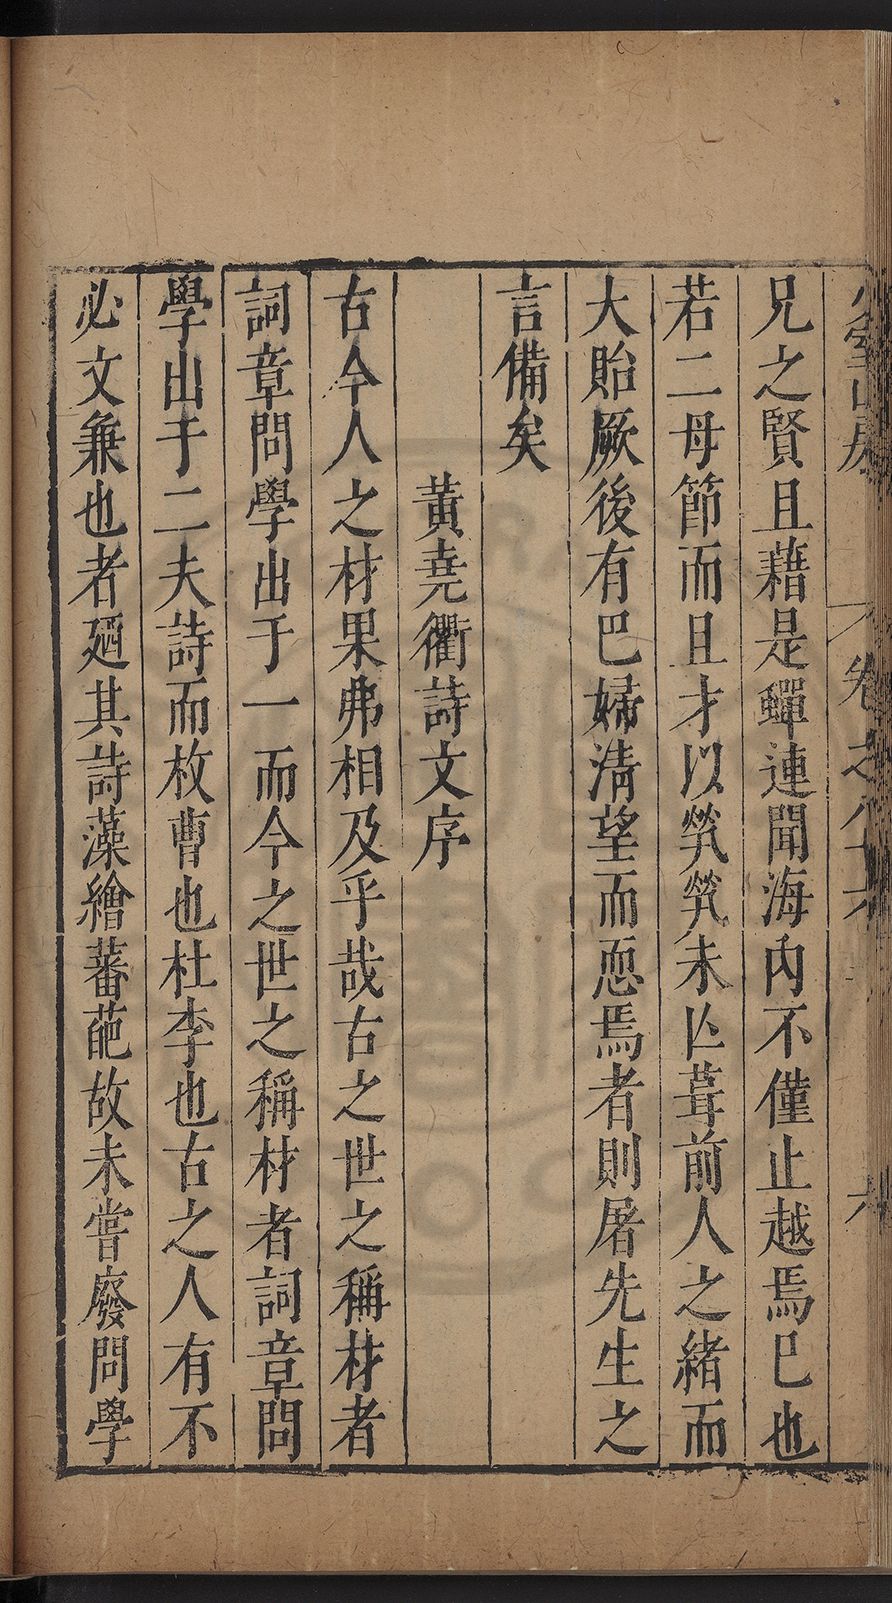 少室山房 卷之八十六 六
兄之賢且藉是蟬連聞海內不僅止越焉巳也
若二母節而且才以煢煢未亾葺前人之緒而
大貽厥後有巴婦淸望而恧焉者則屠先生之
言備矣
黃堯衢詩文序
古今人之材果弗相及乎哉古之世之稱材者
詞章問學出于一而今之世之稱材者詞章問
學出于二夫詩而枚曹也杜李也古之人有不
必文兼也者廼其詩藻繪蕃葩故未嘗廢問學